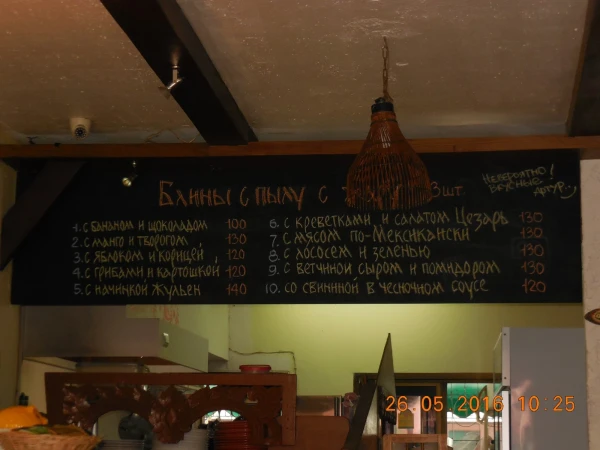 Блины с пылу с жару 3 шт.
Невероятно
вкусные!
Артур
1. с бананом и шоколадом 100
2. с манго и творогом, 130
3. с яблоком и корицей, 120
4. с грибами и картошкой 120
5. с начинкой жульен 140
6. с креветками и салатом Цезарь 130
7. с мясом по-мексикански 130
8. с лососем и зеленью 130
9. с ветчиной сыром и помидором 130
10. со свининой в чесночном соусе 120
26.05.2016 10:25